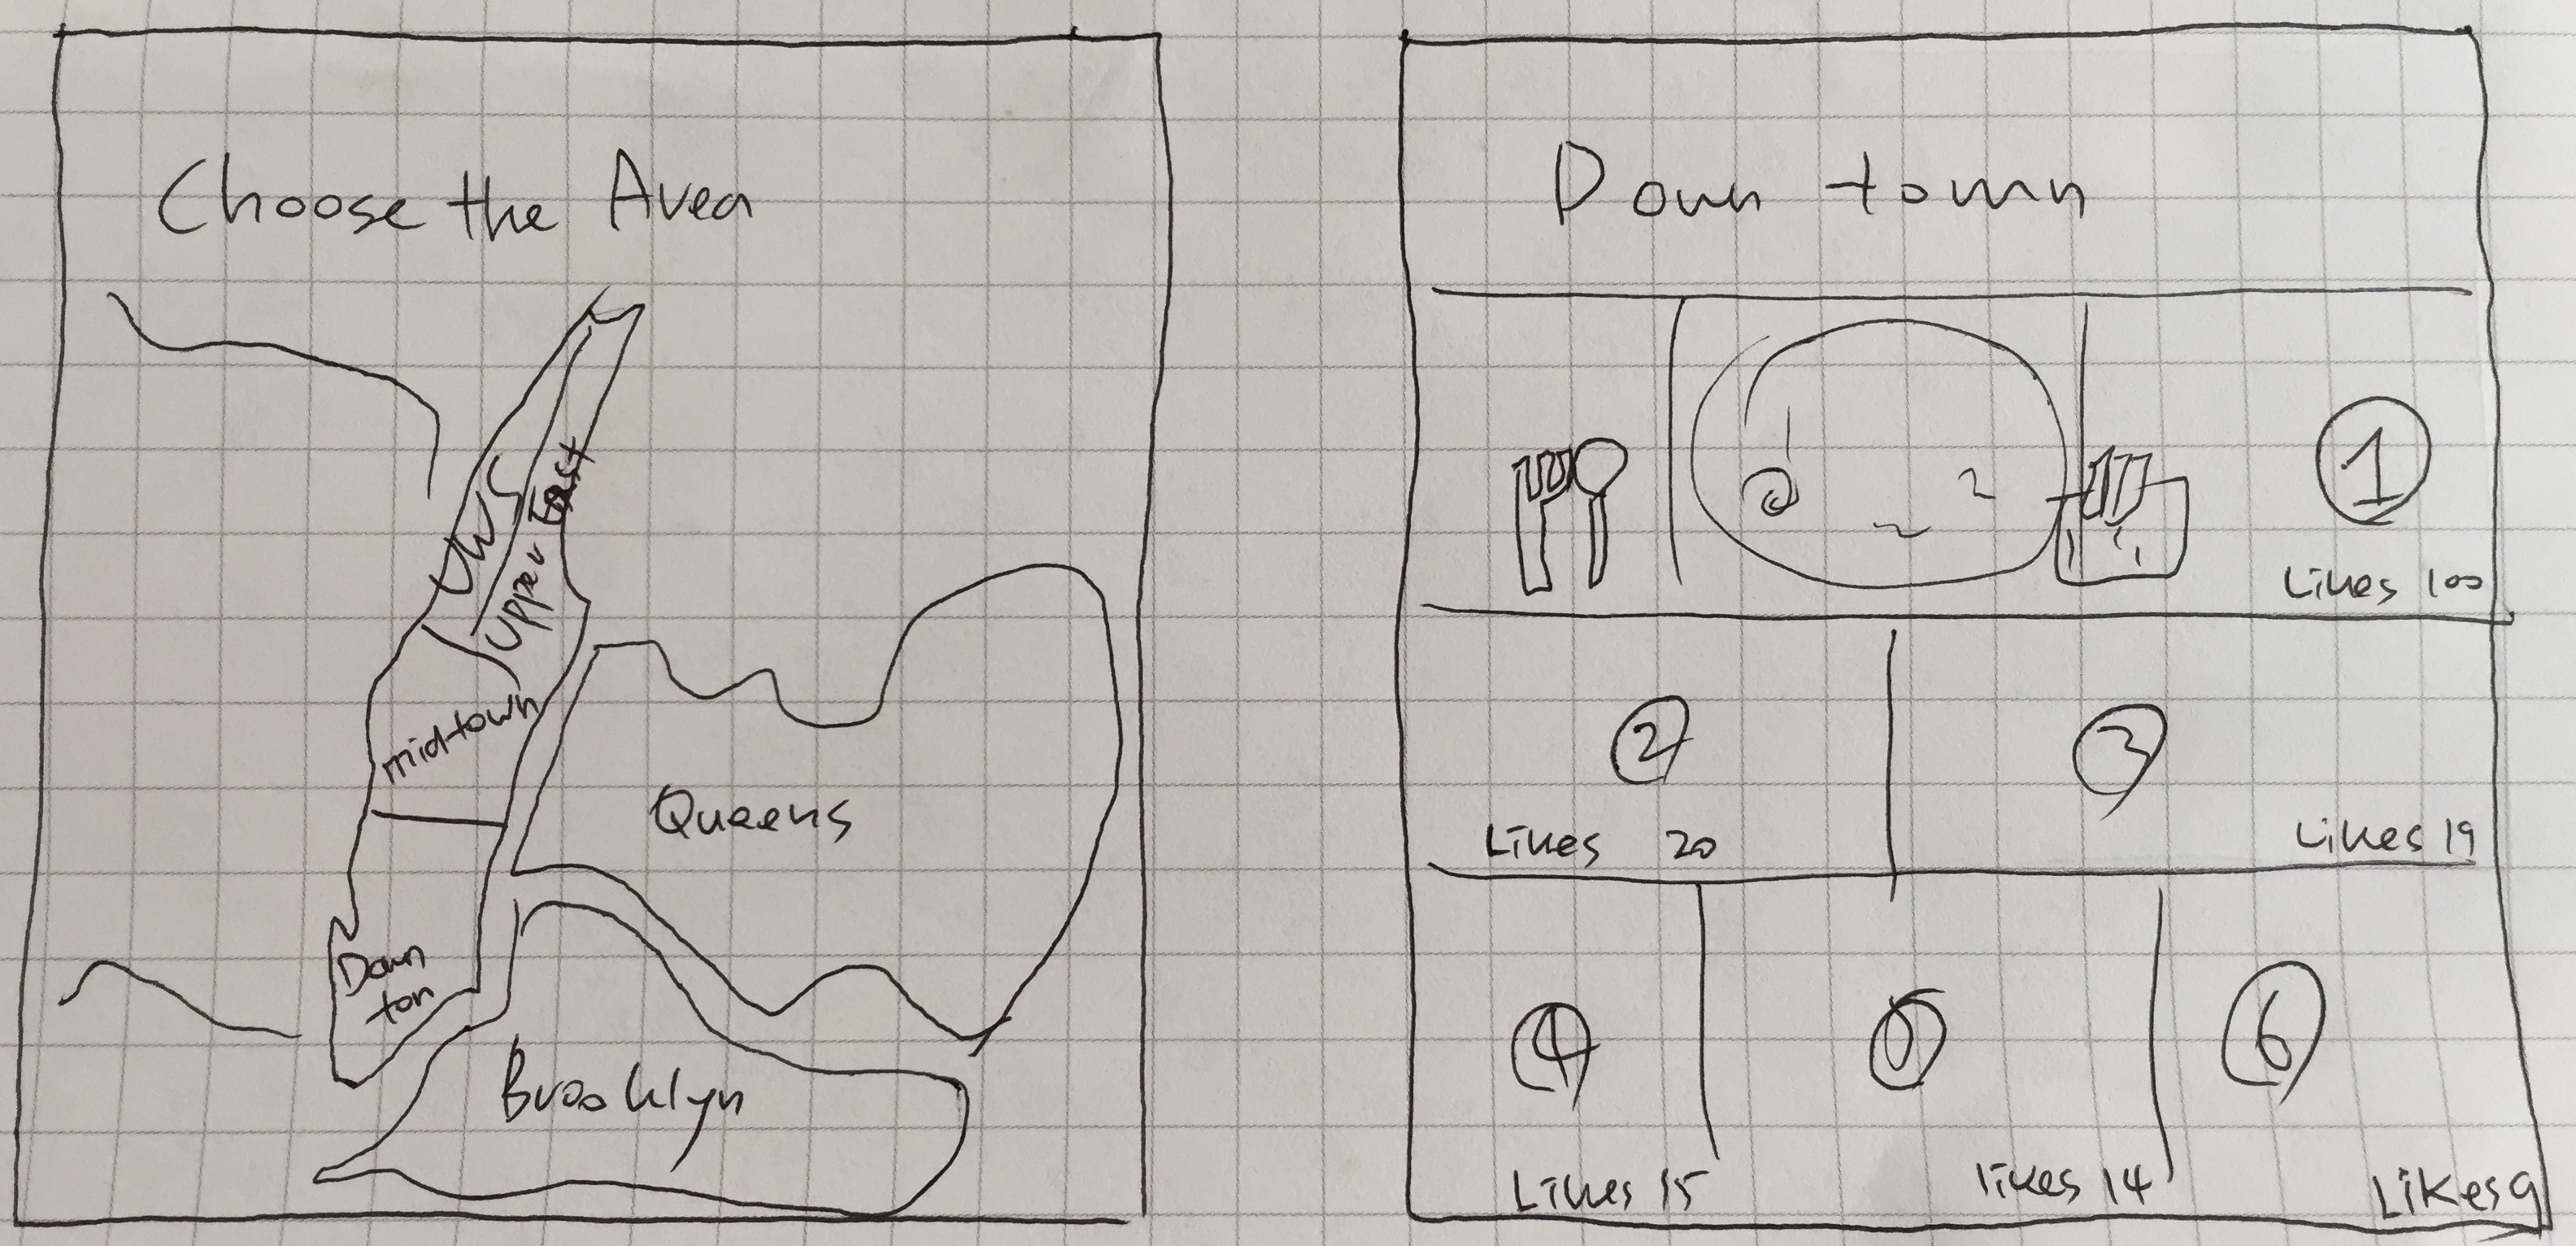 Choose the Area
UWS
Upper East
midtown
Queens
Down
ton
Brooklyn
Down town
1
Likes 100
2
3
Likes 20
Likes 19
4
5
6
Likes 15
likes 14
Likes 9